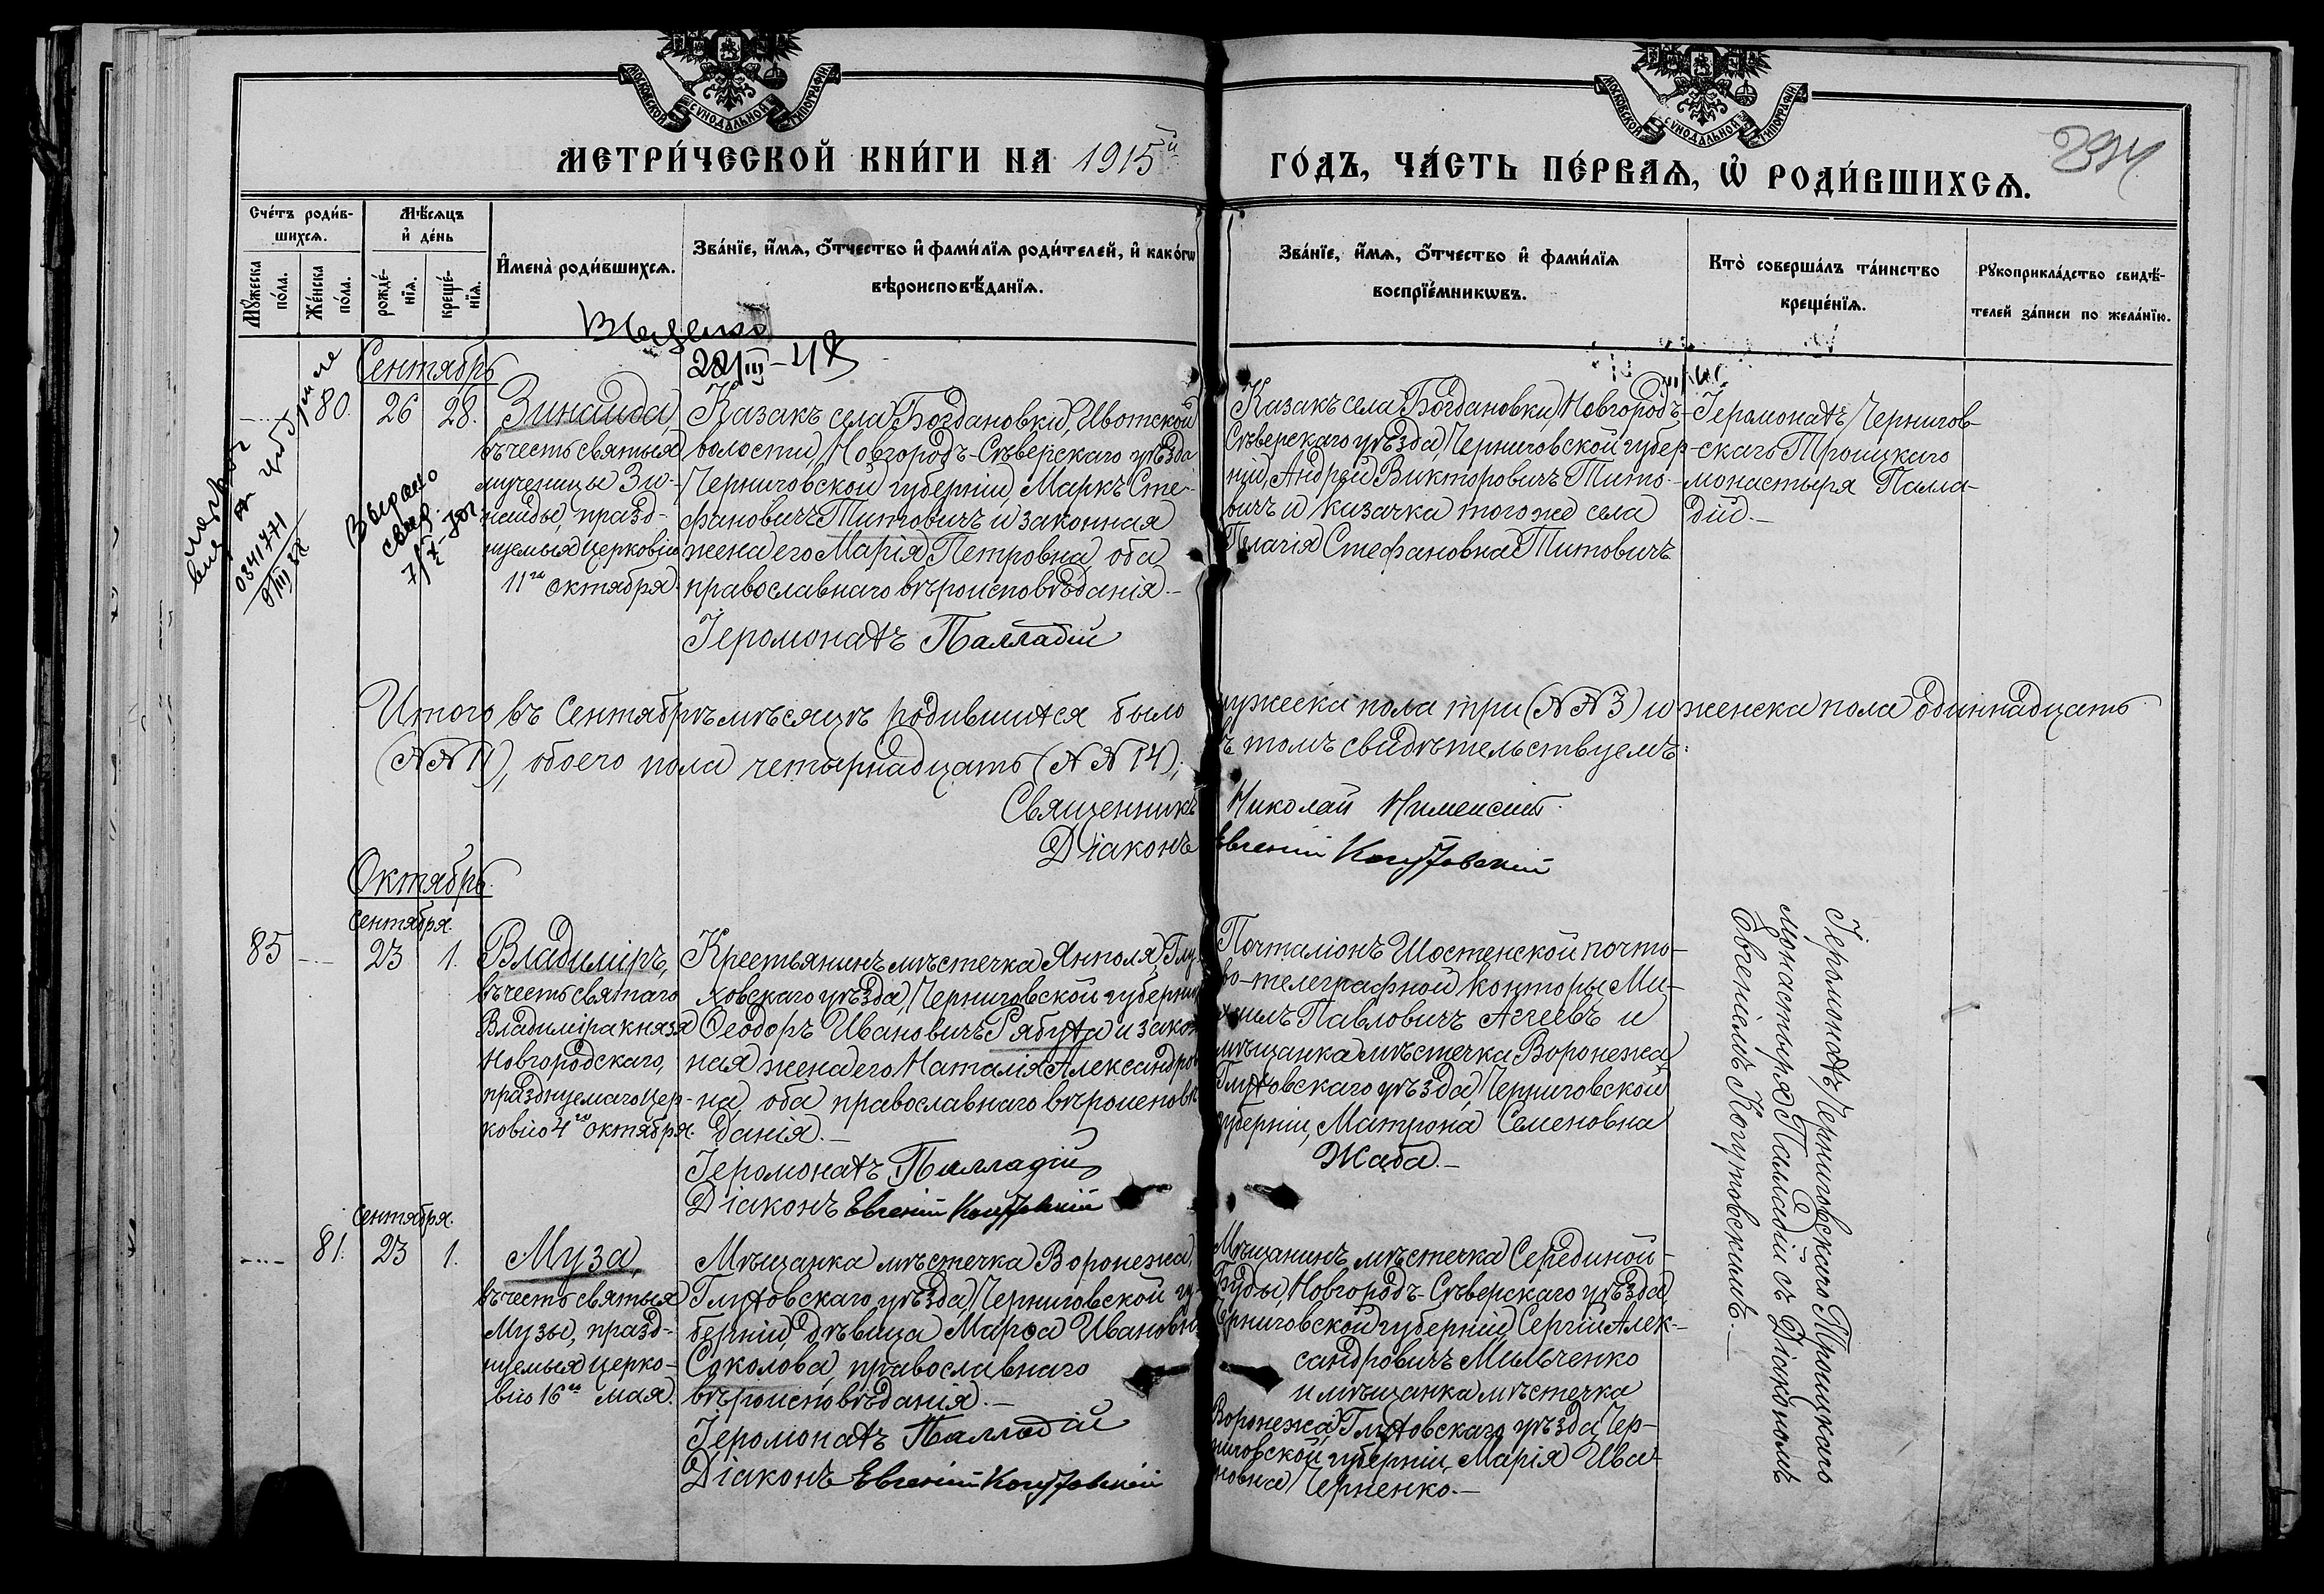 МОСКОВСКОЙ СѴНОДАЛЬНОЙ ТИПОГРАФІИ
МОСКОВСКОЙ СѴНОДАЛЬНОЙ ТИПОГРАФІИ
МЕТРИ́ЧЕСКОЙ КНИ́ГИ НА 1915й
ГО́ДЪ, ЧА́СТЬ ПЕ́РВАѦ, Ѡ҆ РОДИ́ВШИХСѦ.
Сче́тъ роди́в-
шихсѧ.
Мꙋ́жеска
по́ла.
Же́нска
по́ла.
Мѣ́сѧцъ
и҆ де́нь
рожде́-
нїѧ.
креще́-
нїѧ.
И҆мена̀ роди́вшихсѧ.
Зва́нїе, и҆́мѧ, ѻ҆́тчество и҆ фами́лїѧ роди́телей, и҆ како́гѡ
вѣроисповѣ́данїѧ.
Зва́нїе, и҆́мѧ, ѻ҆́тчество и҆ фами́лїѧ
воспрїе́мникѡвъ.
Кто̀ соверша́лъ та́инство
креще́нїѧ.
Рꙋкоприкла́дство свидѣ́-
телей за́писи по жела́нїю.
Сентябрь
80. 26 28.
Зинаида,
въ честь святыя
мученицы Зи-
наиды, празд-
нуемыя Церковію
11го октября.
Казакъ села Богдановки, Ивотской
волости, Новгородъ-Сѣверскаго уѣзда
Черниговской губерніи, Маркъ Сте-
фановичъ Титовичъ и законная
жена его Марія Петровна, оба
православнаго вѣроисповѣданія.-
Іеромонахъ Палладій
Казакъ села Богдановки, Новгородъ-
Сѣверскаго уѣзда, Черниговской губер-
ніи, Андрей Викторовичъ Тито-
вичъ и казачка того же села
Пелагія Стефановна Титовичъ
Іеромонахъ Чернигов-
скаго Троицкаго
монастыря Палла-
дій.-
Выдано
свид.
034171
Итого въ Сентябрѣ мѣсяцѣ родившихся было мужеска пола три (№№ 3) и женска пола одиннадцать
(№№ 11), обоего пола четырнадцать (№№ 14); въ томъ свидѣтельствуемъ:
Священникъ Николай
Діаконъ Евгеній Когутовскій
Октябрь.
Сентября.
85 23 1.
Владиміръ,
въ честь святаго
Владиміра князя
Новгородскаго,
празднуемаго Цер-
ковію 4го октября.
Крестьянинъ мѣстечка Янполя, Глу-
ховскаго уѣзда, Черниговской губерніи
Ѳеодоръ Ивановичъ Рябуха и закон
ная жена его Наталія Александров
на, оба православнаго вѣроисповѣ
данія.-
Іеромонахъ Палладій
Діаконъ Евгеній Когутовскій
Почталіонъ Шостенской почто-
во-телеграфной конторы Ми-
хаилъ Павловичъ Агеевъ и
мѣщанка мѣстечка Воронежа,
Глуховскаго уѣзда, Черниговской
губерніи, Матрона Семеновна
Жаба.-
Іеромонахъ Черниговскаго Троицкаго
монастыря Палладій съ Діакономъ
Евгеніемъ Когутовскимъ.-
Сентября.
81. 23 1.
Муза,
въ честь святыя
Музы, празд-
нуемыя Церко-
вію 16го мая.
Мѣщанка мѣстечка Воронежа,
Глуховскаго уѣзда, Черниговской гу-
берніи, дѣвица Марѳа Ивановна
Соколова, православнаго
вѣроисповѣданія.-
Іеромонахъ Палладій
Діаконъ Евгеній Когутовскій
Мѣщанинъ мѣстечка Середина-
Буды, Новгородъ-Сѣверскаго уѣзда,
Черниговской губерніи, Сергій Алек-
сандровичъ Мильченко
и мѣщанка мѣстечка
Воронежа, Глуховскаго уѣзда, Чер-
ниговской губерніи, Марія Ива-
новна Черненко.-